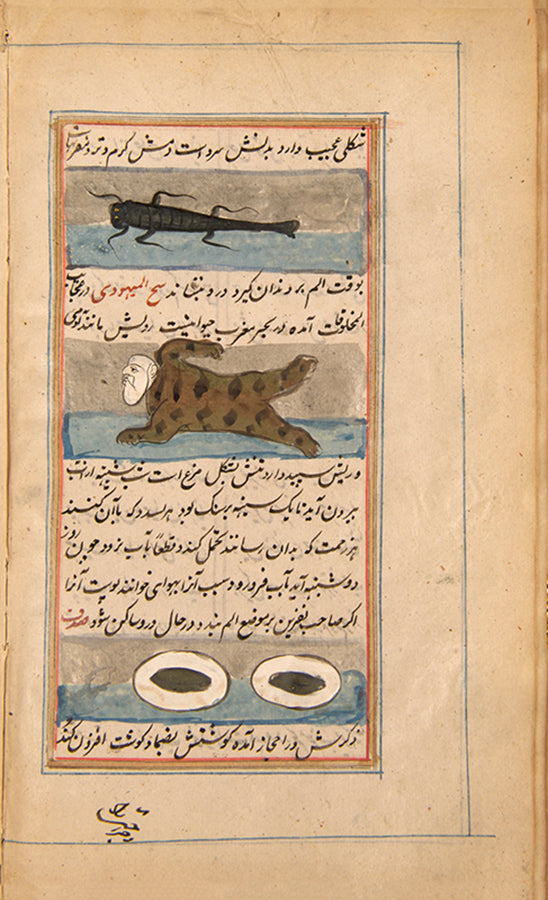 شکلی عجیب دارد بدنش سرد است دمش کرم و تر دندان
بوقت الم بر دندان گیرد درد بنشاند شیخ الیهودی در عجایب
المخلوقات آمده در بحر مغرب حیوانیست رویش مانند آدمی
و ریش سپید دارد تنش بشکل مزغ است شب شنبه از آب
بیرون آید تا یک شنبه برسنک بود هر
هر زحمت که بدان رسانند تحمل کند و قطعا بآب نرود چون روز
دوشنبه آید بآب فرو رود سبب آنرا یهودی خوانند پوست آنرا
اکر صاحب نقرس بر موضع الم بندد در حال درد ساکن شود صدف
ذکرش در احجاز آمده کوشتش بضماد کوشت افزون کند